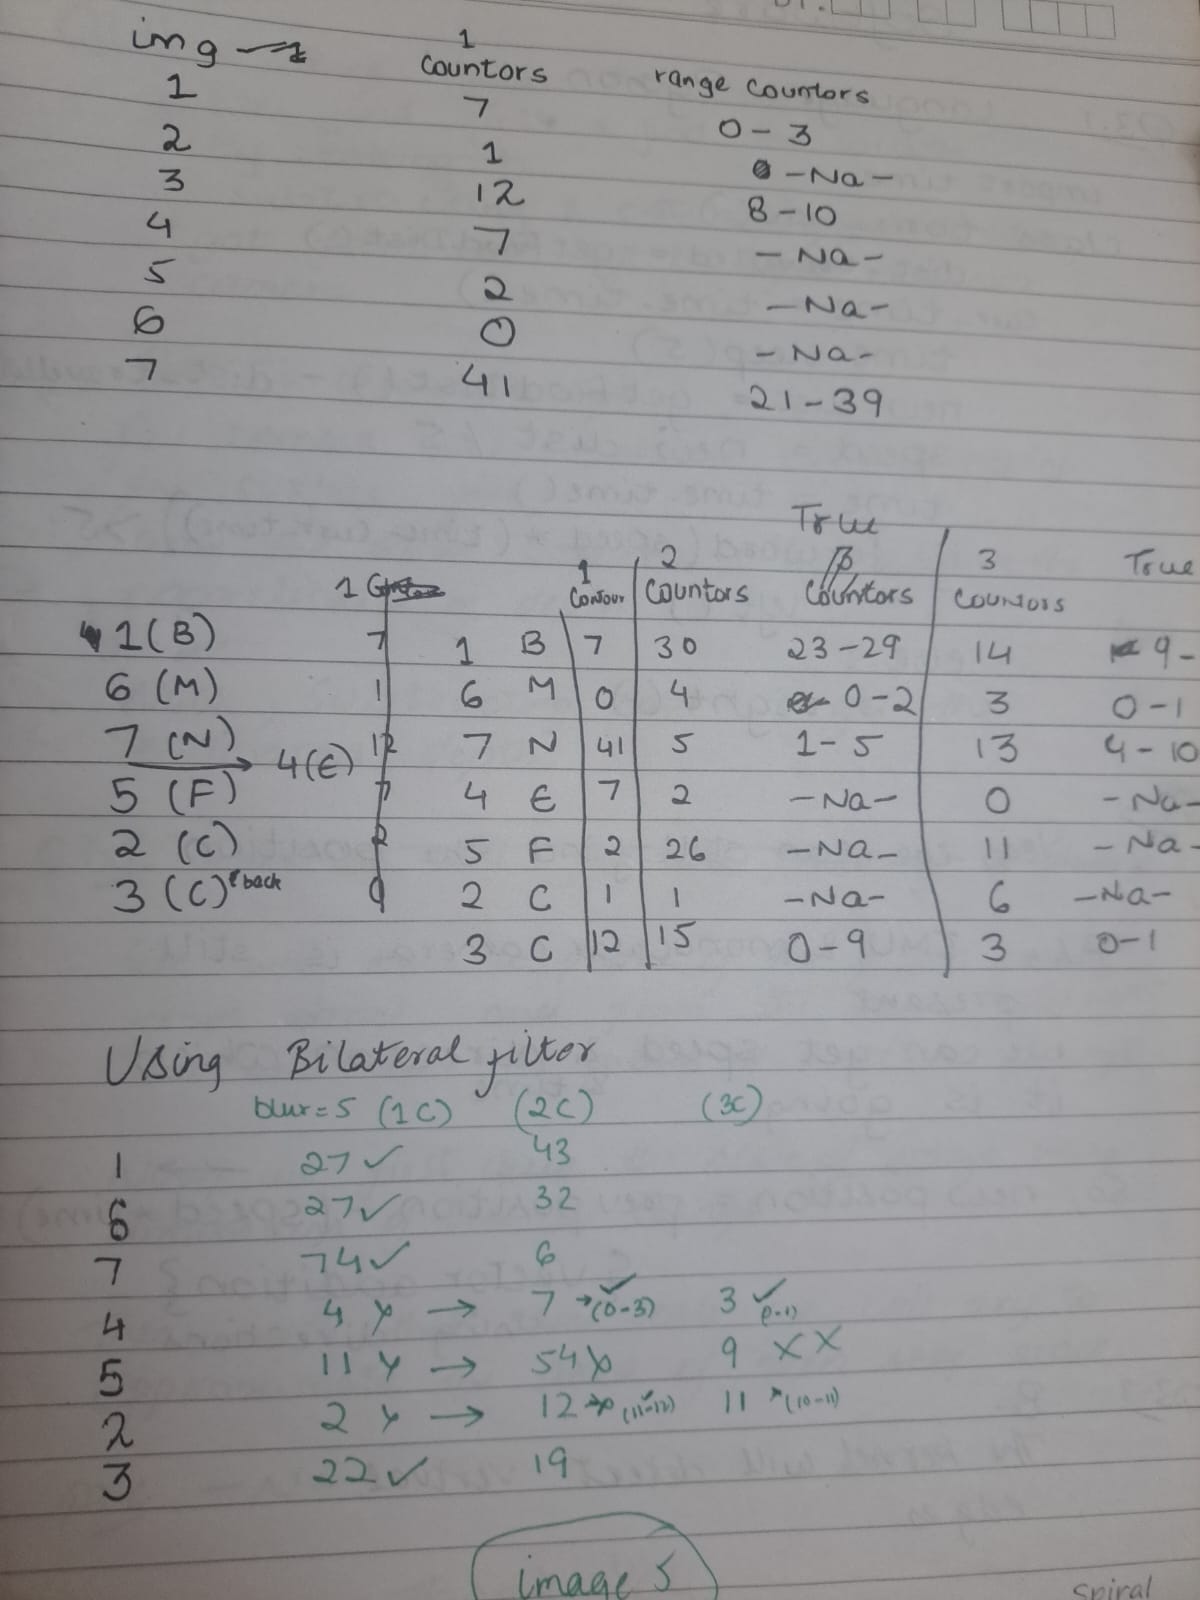 img → 1 1 countors range countors
1 7 0 - 3
2 1 - Na -
3 12 8 - 10
4 7 - Na -
5 2 - Na -
6 0 - Na -
7 41 21 - 39
True
1 2 B 3 True
1 Contour Countors Countors Countors
1 (B) 7 1 B 7 30 23 - 29 14 9 -
6 (M) 1 6 M 0 4 0 - 2 3 0 - 1
7 (N) 12 7 N 41 5 1 - 5 13 4 - 10
→ 4 (E)
5 (F) 7 4 E 7 2 - Na - 0 - Na -
2 (C) 2 5 F 2 26 - Na - 11 - Na -
3 (C) back 0 2 C 1 1 - Na - 6 - Na -
3 C 12 15 0 - 9 3 0 - 1
Using Bilateral filter
blur = 5 (1C) (2C) (3C)
1 27 ✓ 43
6 27 ✓ 32
7 74 ✓ 6
4 4 x → 7 → (0-3) ✓ 3 ✓ (0-1)
5 11 x → 54 x 9 X X
2 2 x → 12 (11-12) 11 (10-11)
3 22 ✓ 19
image 5
Spiral